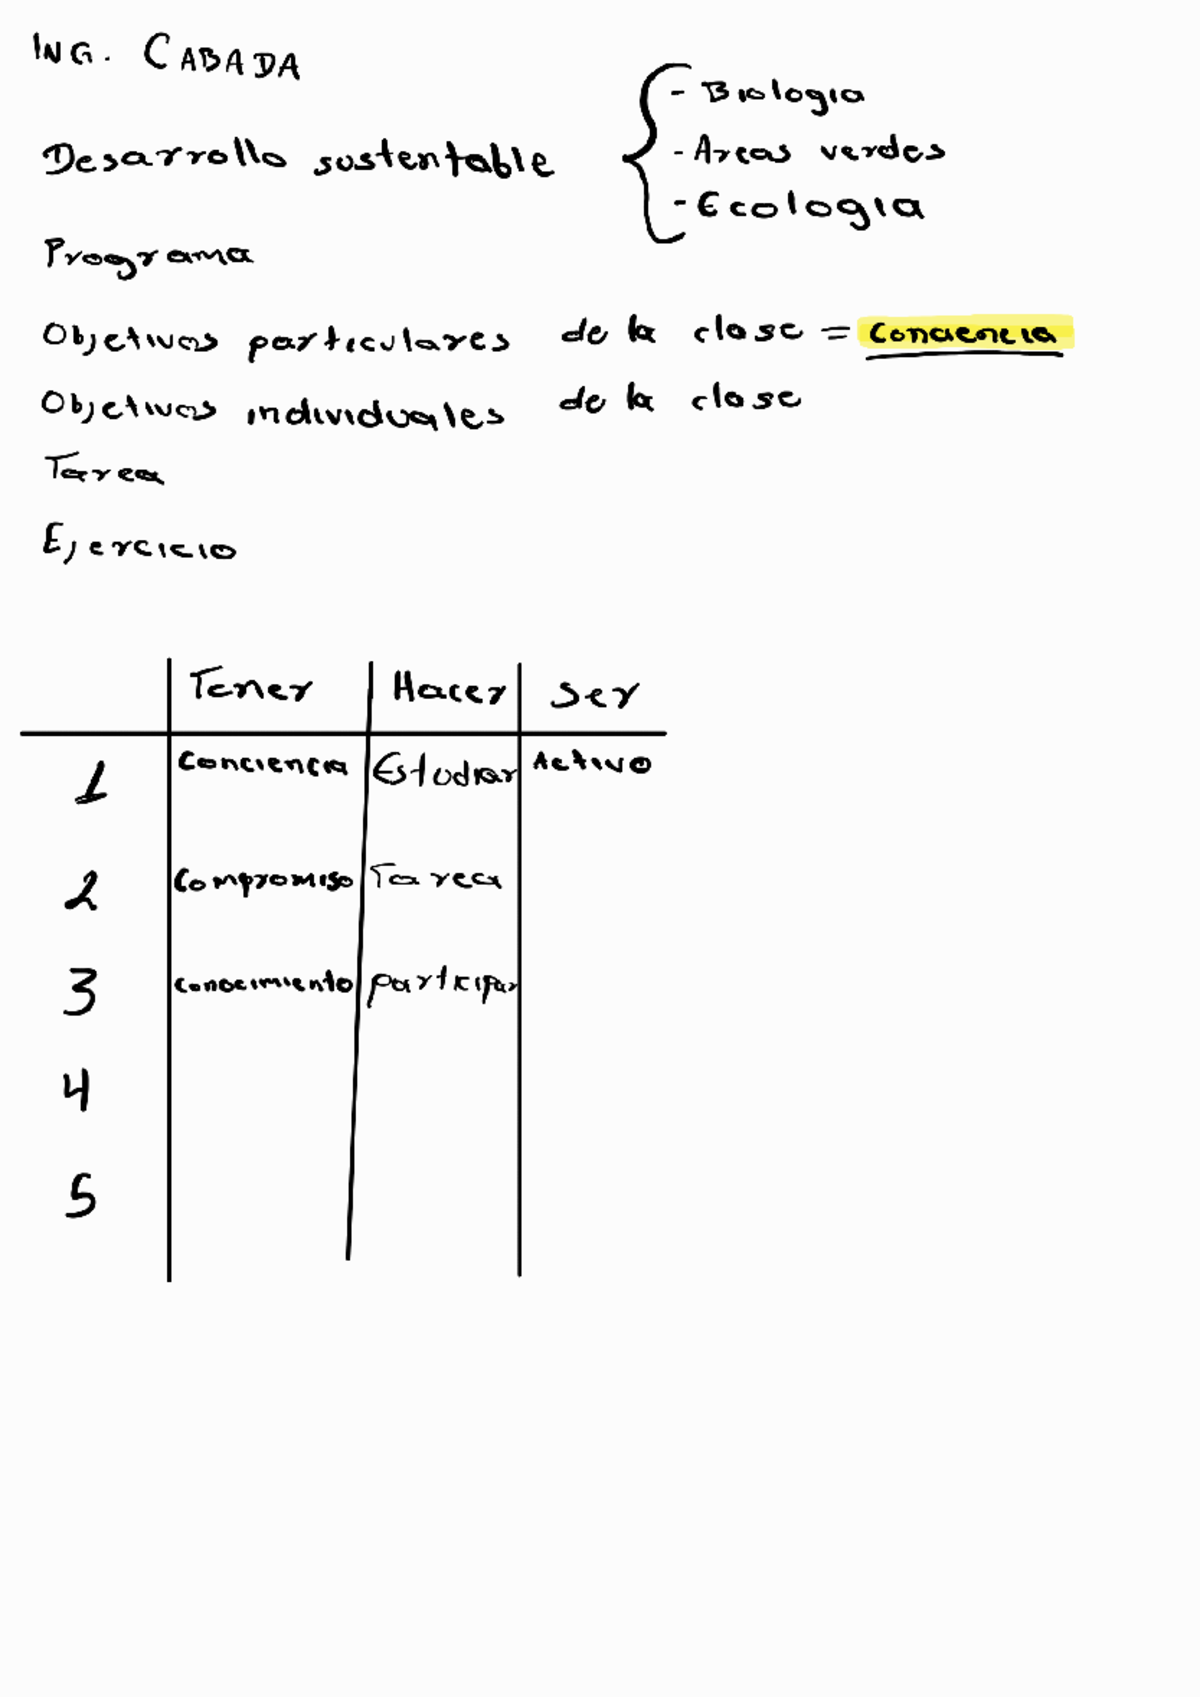 ING. CABADA
Desarrollo sustentable
- Biologia
- Areas verdes
- Ecologia
Programa
Objetivos particulares de la clase = Conciencia
Objetivos individuales de la clase
Tarea
Ejercicio
Tener Hacer Ser
1 Conciencia Estudiar Activo
2 Compromiso Tarea
3 Conocimiento participar
4
5